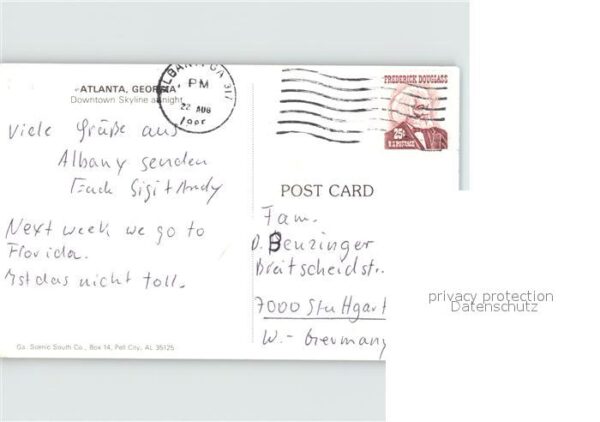 ATLANTA, GEORGIA
Downtown Skyline at night
Viele Grüße aus
Albany senden
Euch Sigit Andy
Next week we go to
Florida.
Ist das nicht toll.
Ga. Scenic South Co., Box 14, Pell City, AL 35125
ALBANY, GA 317
PM
22 AUG
FREDERICK DOUGLASS
25¢
U.S. POSTAGE
POST CARD
Fam.
D. Benzinger
Breitscheidstr.
7000 Stuttgart
W.-Germany
privacy protection
Datenschutz